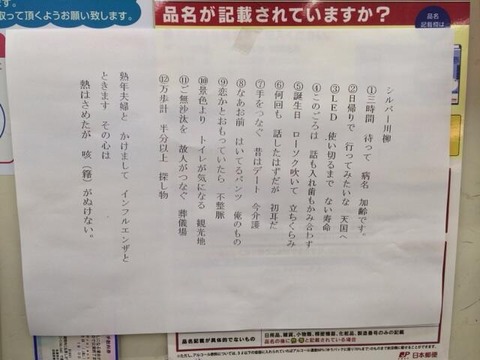 お願い致します。
取って頂くようお願い致します。
品名が記載されていますか?
品名
シルバー川柳
①三時間 待って 病名 加齢です。
②日帰りで 行ってみたいな 天国へ
③LED 使い切るまで ない寿命
④このごろは 話も入れ歯もかみ合わず
⑤誕生日 ローソク吹いて 立ちくらみ
⑥何回も 話したはずだが 初耳だ
⑦手をつなぐ 昔はデート 今介護
⑧なあお前 はいてるパンツ 俺のもの
⑨恋かとおもっていたら 不整脈
⑩景色より トイレが気になる 観光地
⑪ご無沙汰を 故人がつなぐ 葬儀場
⑫万歩計 半分以上 探し物
熟年夫婦と かけまして インフルエンザと
ときます その心は
熱はさめたが 咳(籍)がぬけない。
品名記載が具体的でないもの
日本郵便